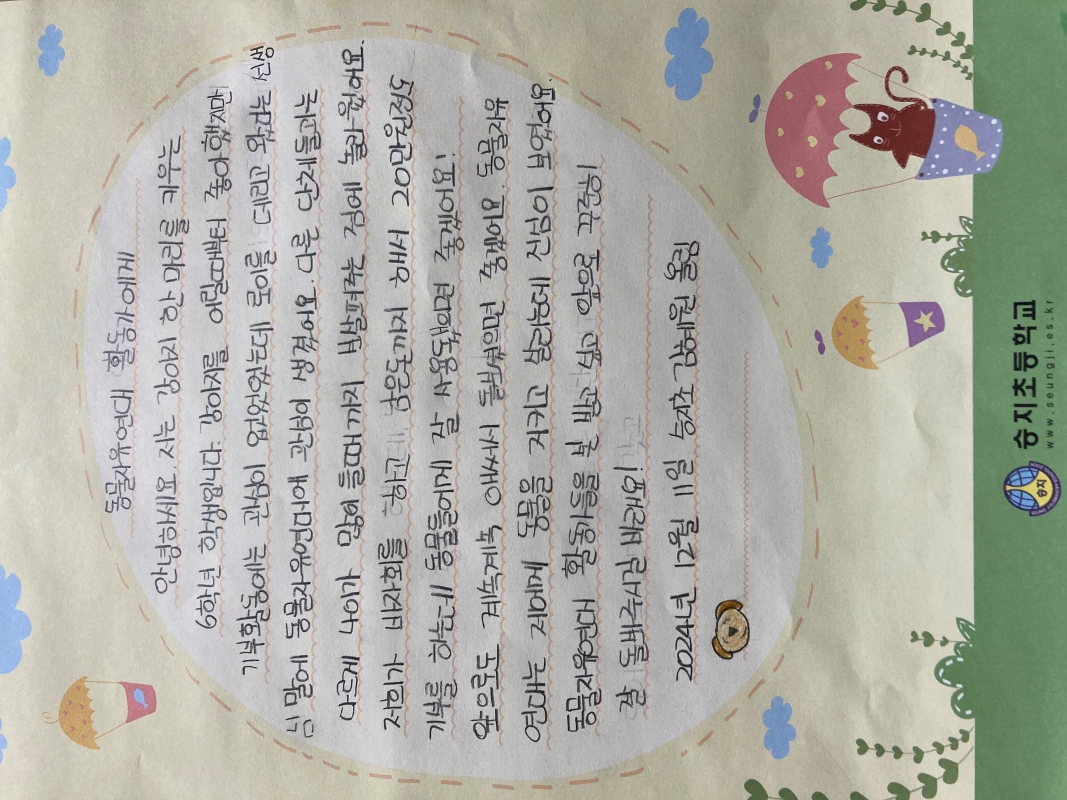 동물자유연대 활동가에게
안녕하세요. 저는 강아지 한 마리를 키우는
6학년 학생입니다. 강아지를 어릴때부터 좋아했지만
기부활동에는 관심이 없었었는데 로이를 데리고 왔다는 선생
님 말에 동물자유연대에 관심이 생겼어요. 다른 단체들과는
다르게 나이가 많이 들때까지 보살펴주는 점에 놀라웠어요.
저희가 바자회를 하고 남은돈까지 해서 20만원정도
기부를 하는데 동물들에게 잘 사용됐으면 좋겠어요!
앞으로도 계속계속 애써서 돌봐줬으면 좋겠어요. 동물자유
연대는 저에게 동물을 지키고 살리는데 진심이 보였어요.
동물자유연대 활동가들을 본 받고 싶고 앞으로 꾸준히
잘 돌봐주시길 바래요!
2024년 12월 11일 승지초 김혜원 올림
승지초등학교
www.seungji.es.kr
승지